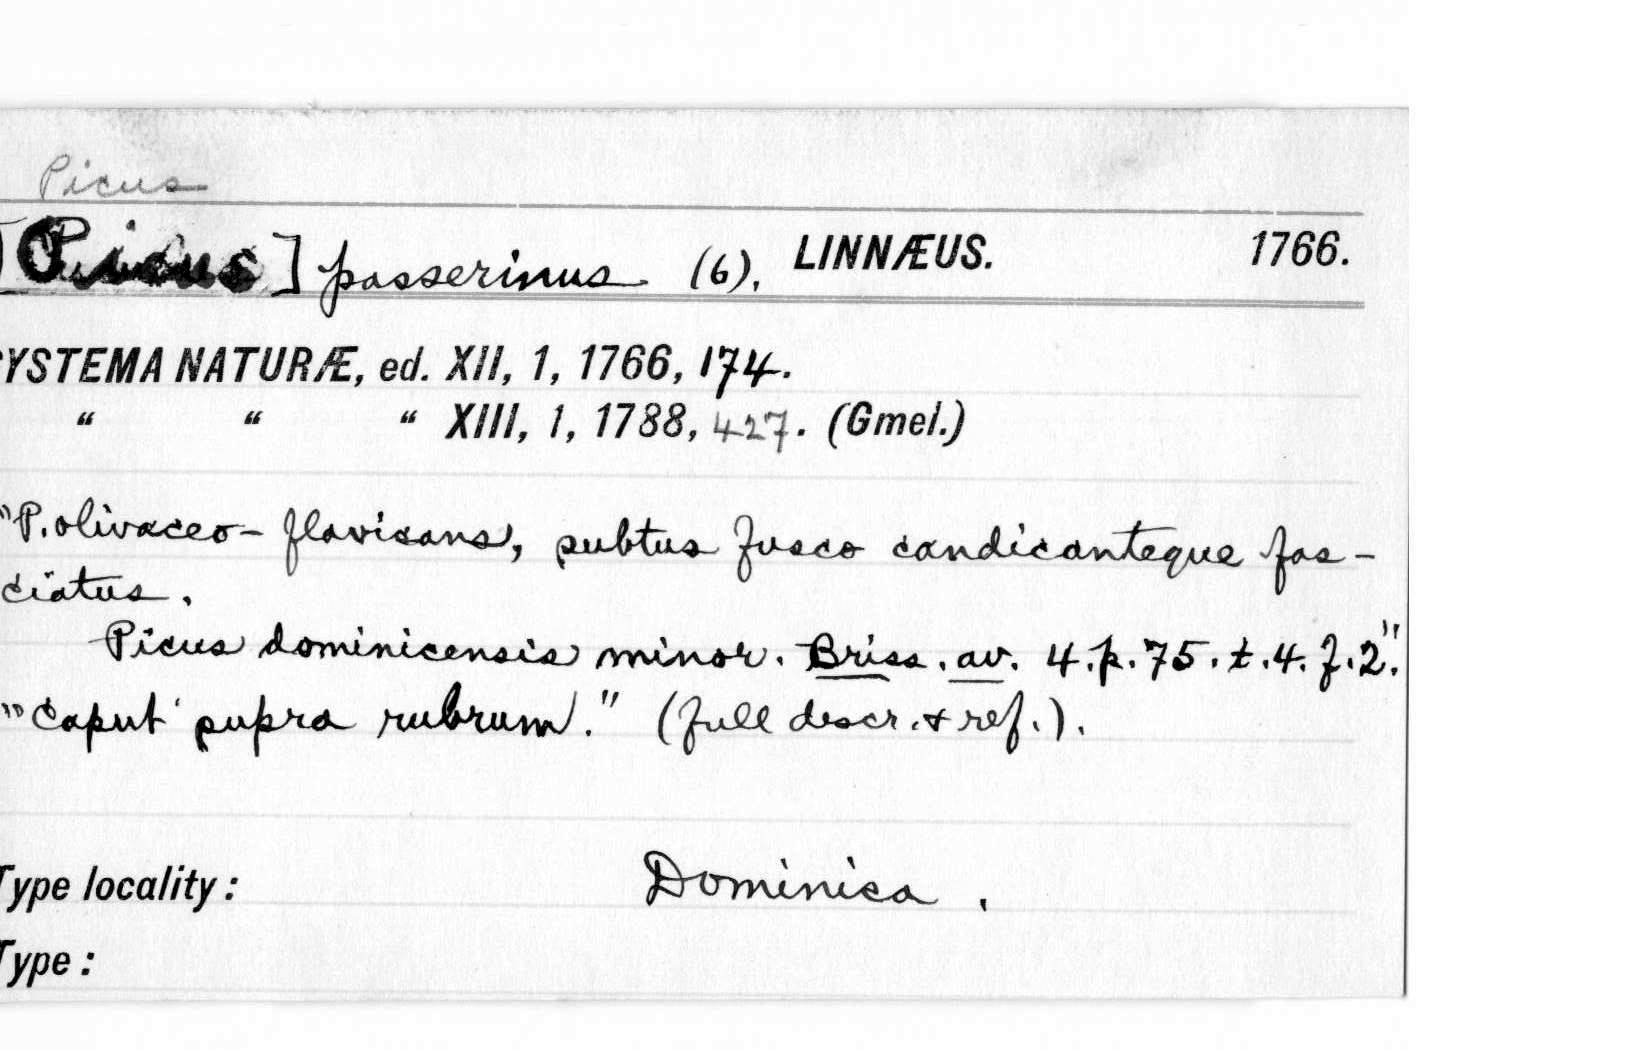 Picus
[Picus] passerinus (6), LINNÆUS. 1766.
YSTEMA NATURÆ, ed. XII, 1, 1766, 174.
“ “ “ XIII, 1, 1788, 427. (Gmel.)
"P. olivaceo-flavicans, subtus fusco candicanteque fas-
ciatus.
Picus dominicensis minor. Briss. av. 4. p. 75. t. 4. f. 2."
"Caput supra rubrum." (full descr. & ref.).
Type locality: Dominica.
Type: